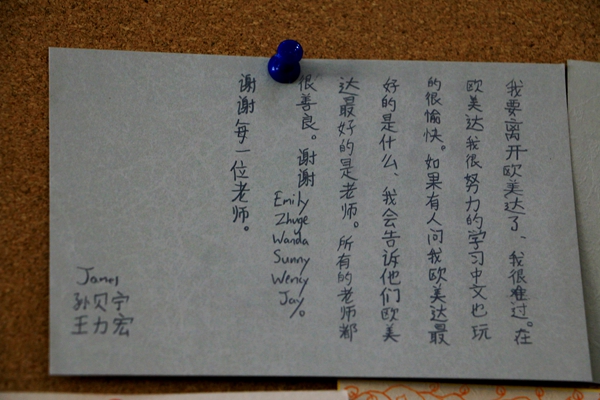 我要离开欧美达了、我很难过。在
欧美达我很努力的学习中文也玩
的很愉快。如果有人问我欧美达最
好的是什么、我会告诉他们欧美
达最好的是老师。所有的老师都
很善良。谢谢
Emily
Zhuge
Wanda
Sunny
Wency
Jay。
谢谢每一位老师。
James
孙贝宁
王力宏